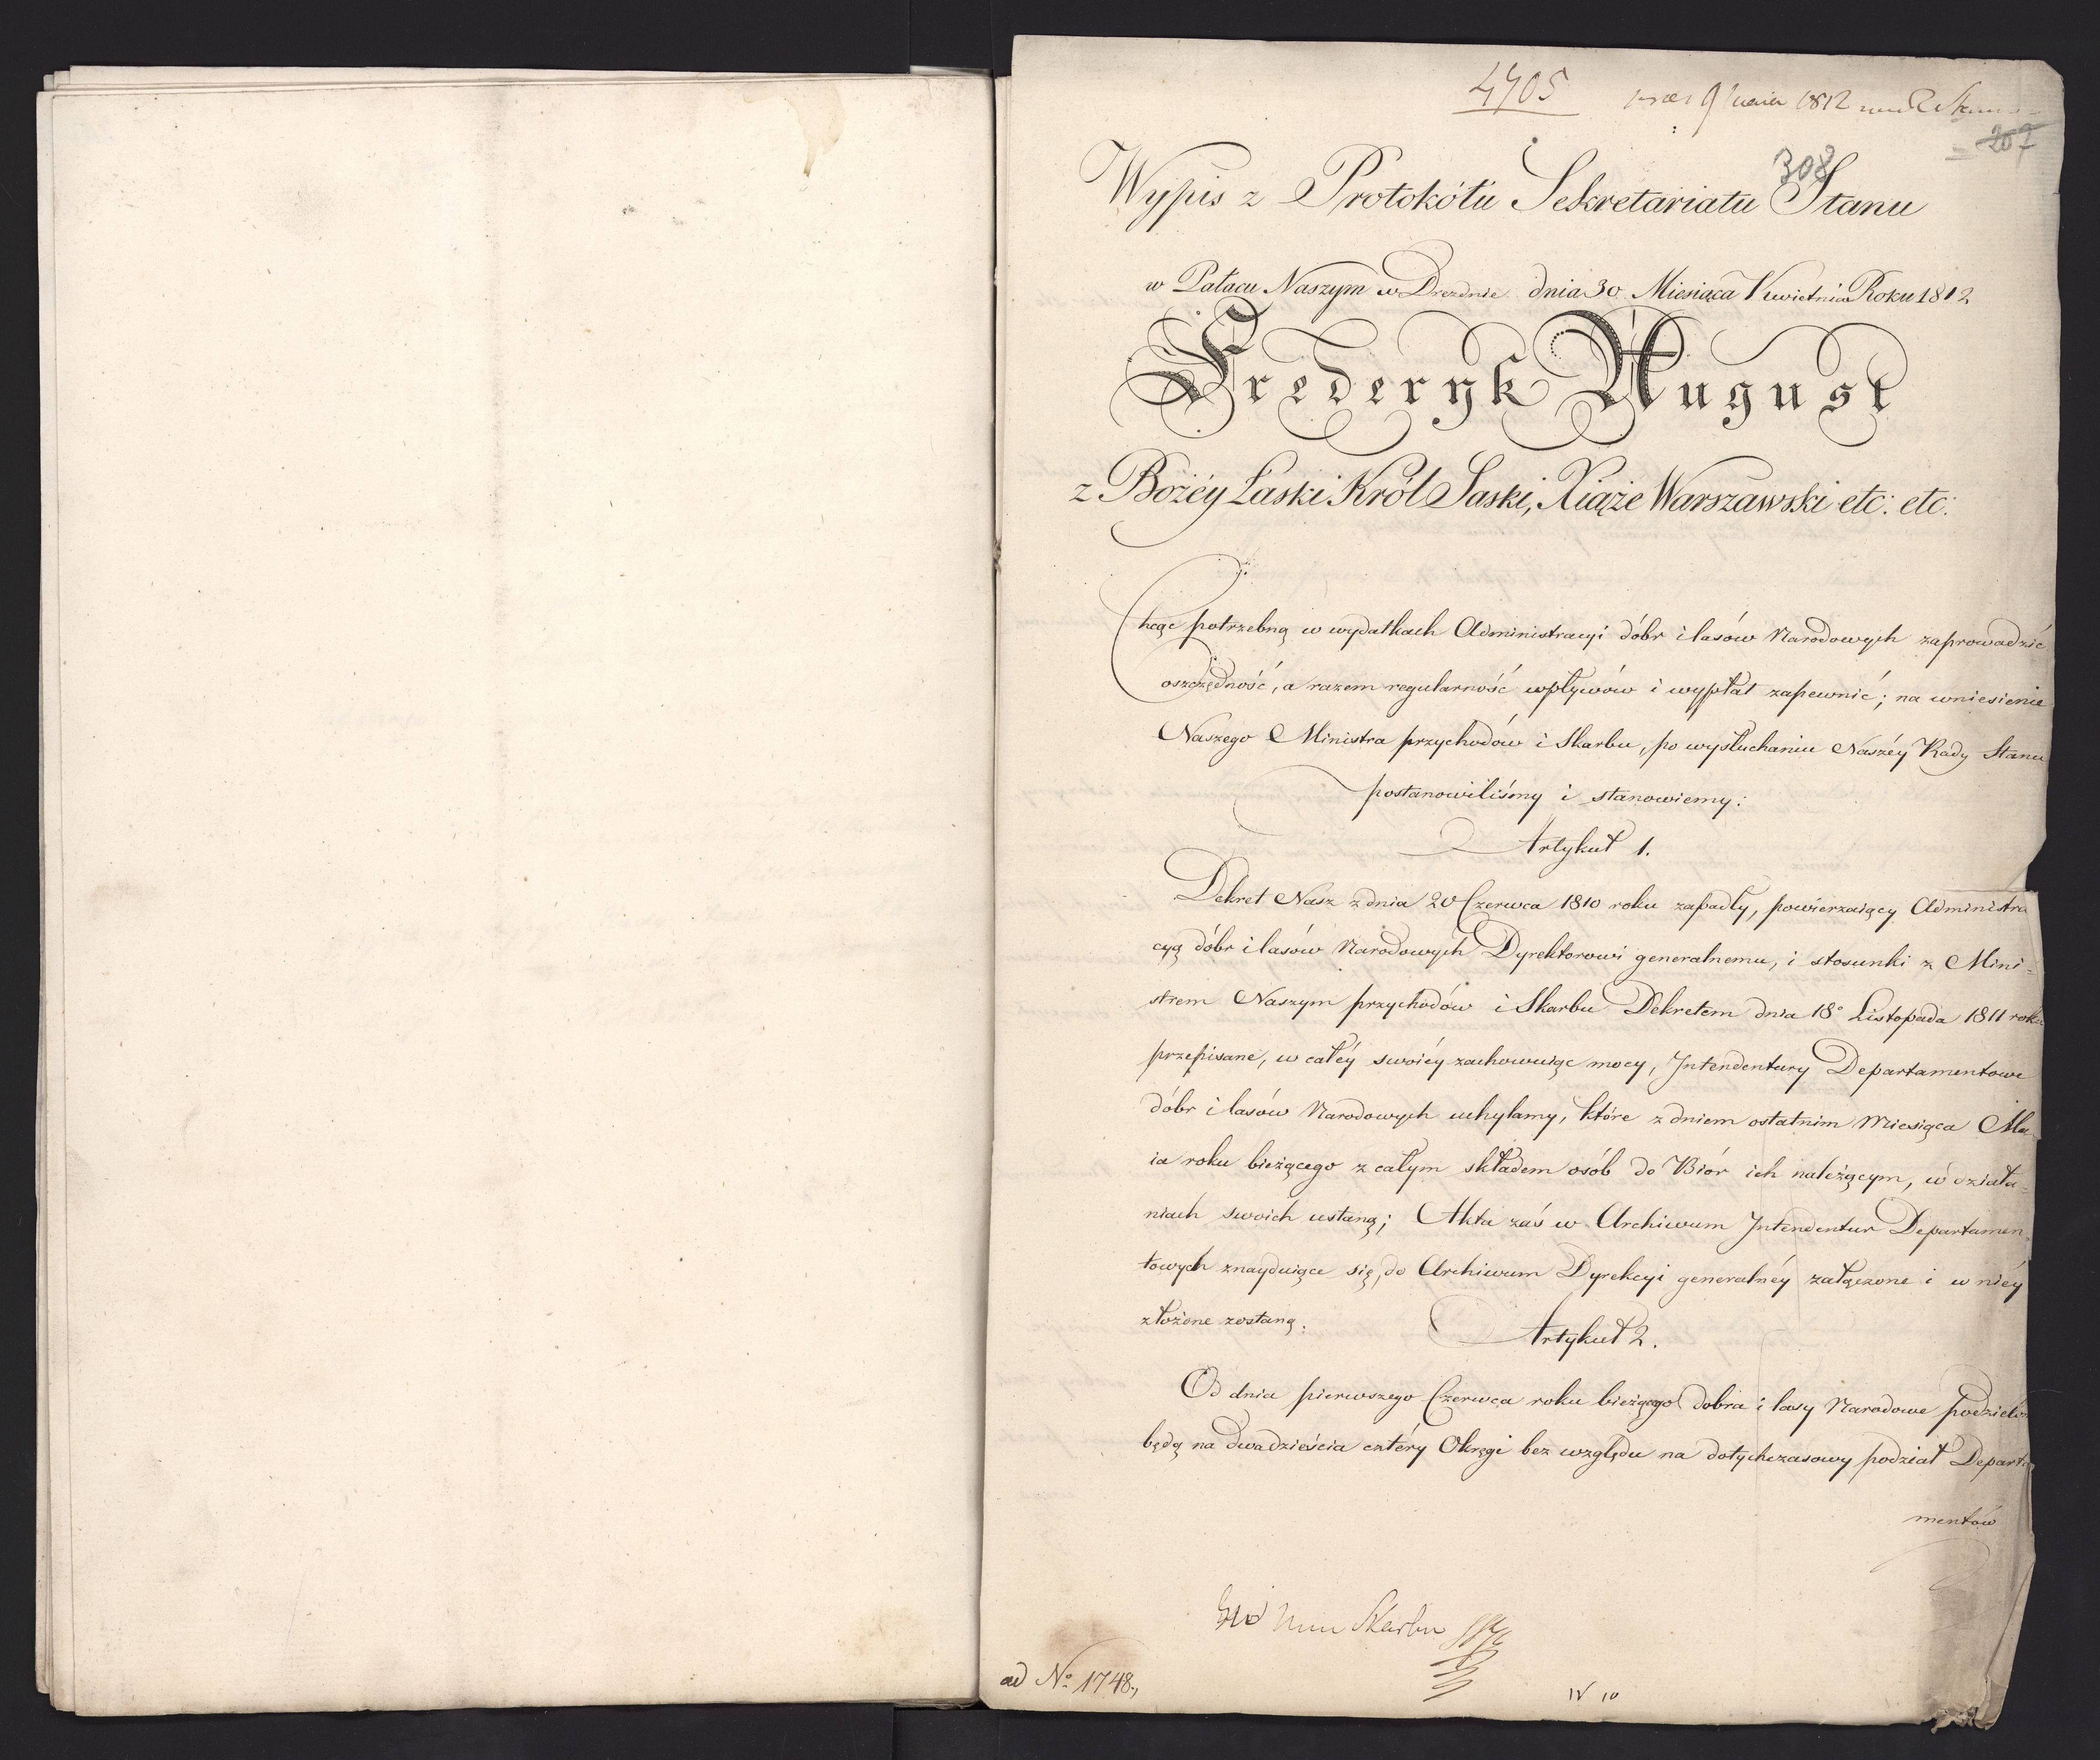 4705
9 1812
207
308
Wypis z Protokółu Sekretariatu Stanu
w Pałacu Naszym w Dreznie dnia 30 Miesiąca Kwietnia Roku 1812
Frederyk August
z Bożéy Łaski Król Saski, Xiąże Warszawski etc: etc:
Chcąc potrzebną w wydatkach Administracyi dóbr i lasów Narodowych zaprowadzić
oszczędność, a razem regularność wpływów i wypłat zapewnić; na wniesienie
Naszego Ministra przychodów i Skarbu, po wysłuchaniu Naszéy Rady Stanu
postanowiliśmy i stanowiemy:
Artykuł 1.
Dekret Nasz z dnia 20 Czerwca 1810 roku zapadły, powierzaiący Administra
cyą dóbr i lasów Narodowych Dyrektorowi generalnemu, i stosunki z Mini=
strem Naszym przychodów i Skarbu Dekretem dnia 18º Listopada 1811 roku
przepisane, w całéy swoiéy zachowuiąc mocy, Intendentury Departamentowe
dóbr i lasów Narodowych uchylamy, które z dniem ostatnim Miesiąca Ma=
ia roku bieżącego z całym składem osób do Biór ich należącym, w działa=
niach swoich ustaną; Akta zaś w Archiwum Intendentur Departamen=
towych znayduiące się, do Archiwum Dyrekcyi generalnéy załączone i w niéy
złożone zostaną.
Artykuł 2.
Od dnia pierwszego Czerwca roku bieżącego dobra i lasy Narodowe podzielo
będą na dwadzieścia cztéry Okręgi bez względu na dotychczasowy podział Departa
mentów
Skarbu
ad Nº 1748.,
IV 10